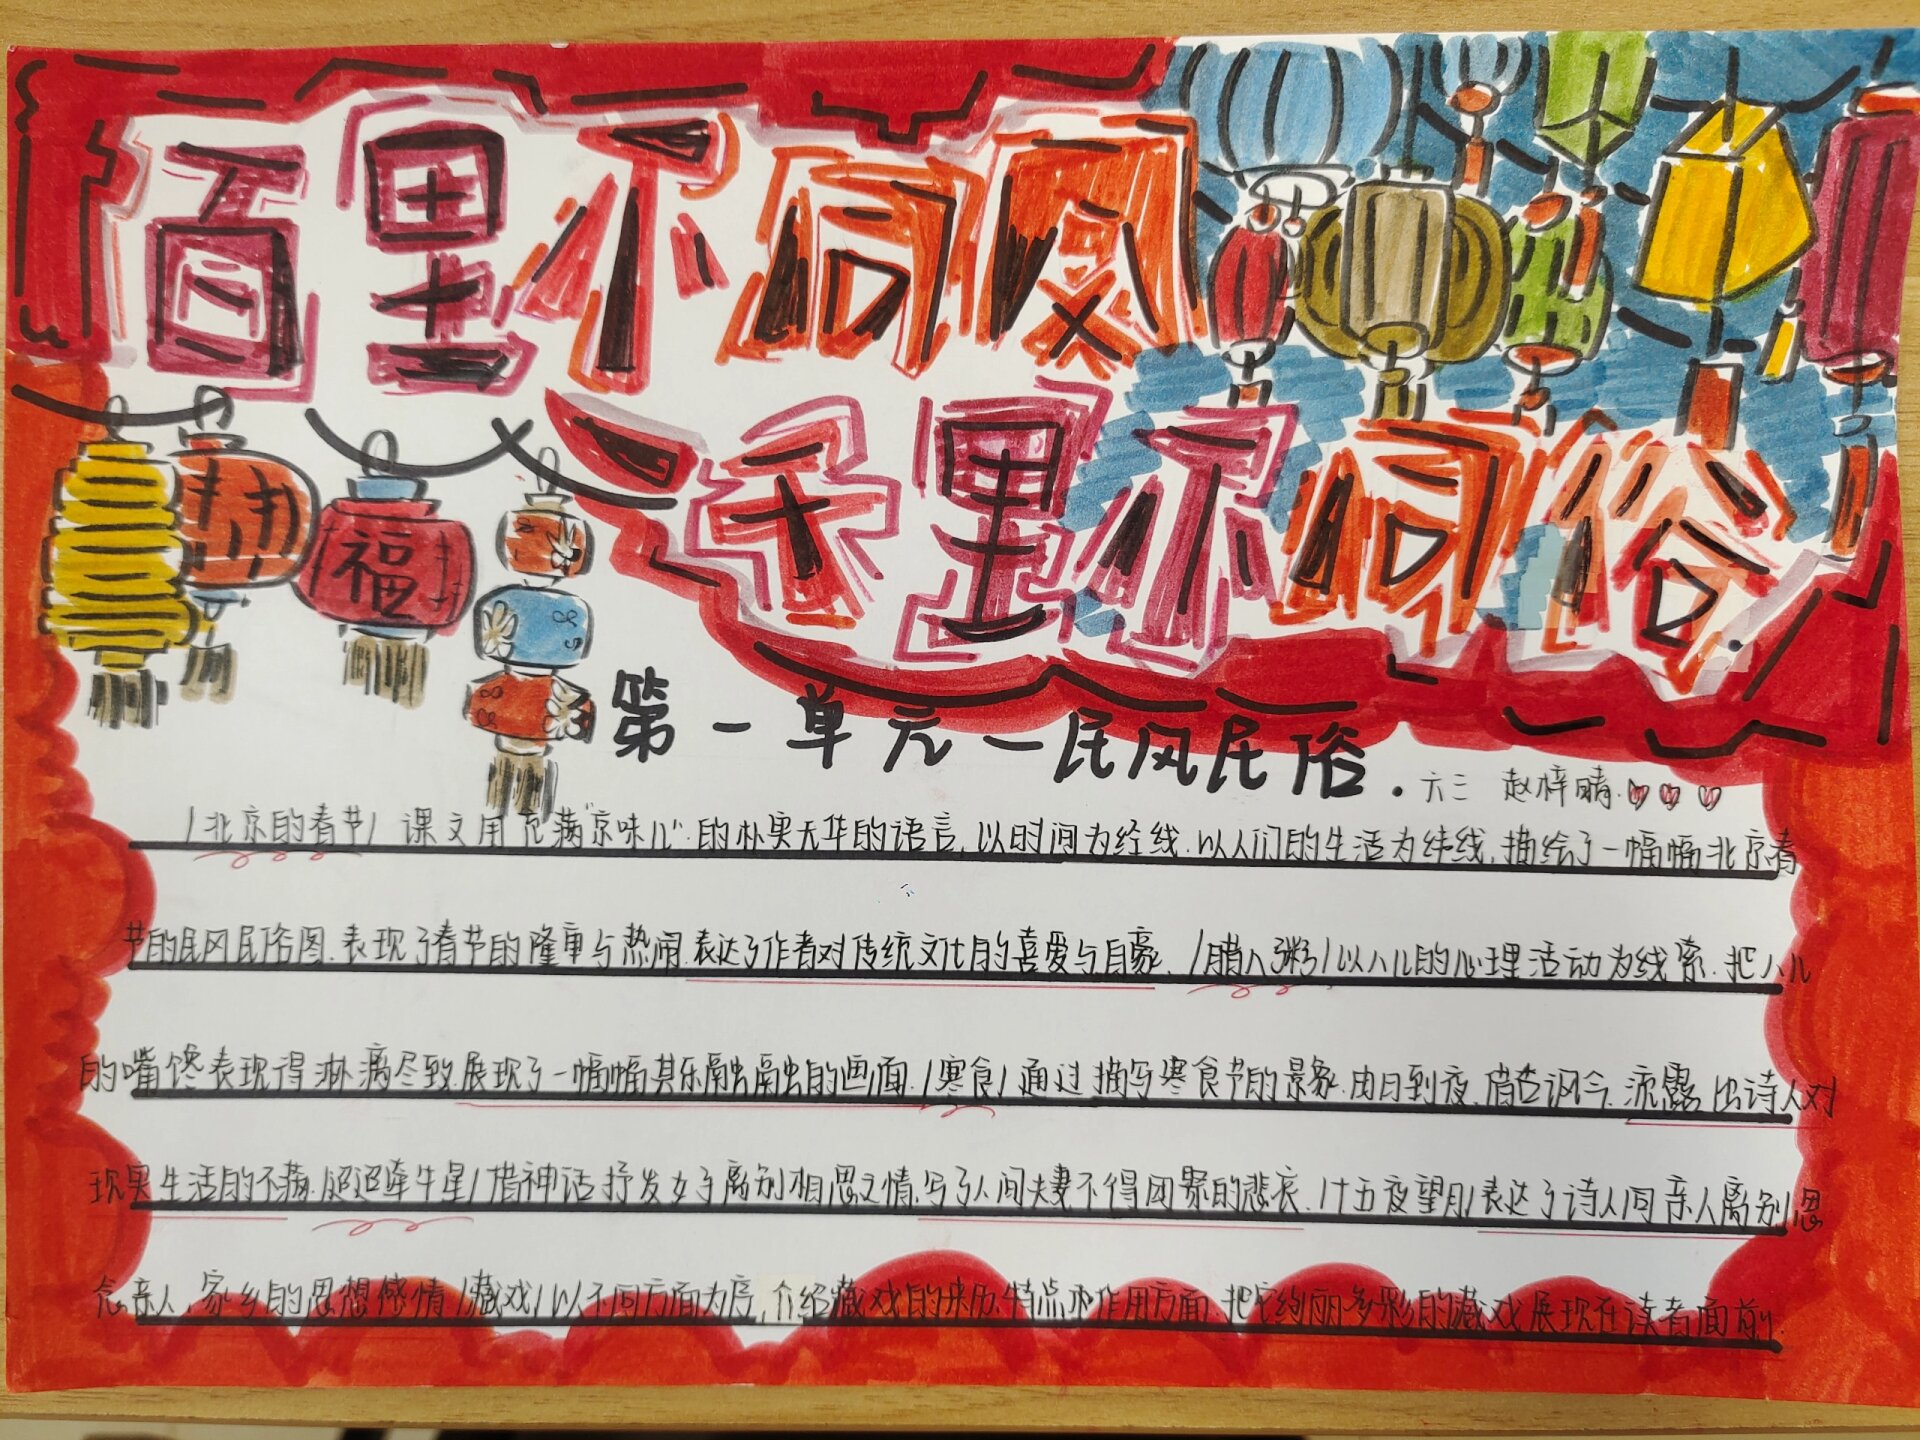 百里不同风
千里不同俗
福
第一单元一民风民俗.
六三 赵梓晴
/北京的春节/ 课文用充满"京味儿"的朴实无华的语言,以时间为经线.以人们的生活为纬线,描绘了一幅幅北京春
节的民风民俗图.表现了春节的隆重与热闹.表达了作者对传统文化的喜爱与自豪./腊八粥/以八儿的心理活动为线索.把八儿
的嘴馋表现得淋漓尽致.展现了一幅幅其乐融融的画面./寒食/通过描写寒食节的景象.由日到夜.借古讽今.流露出诗人对
现实生活的不满.迢迢牵牛星/借神话抒发女子离别相思之情.写了人间夫妻不得团聚的悲哀./十五夜望月/表达了诗人同亲人离别思
念亲人、家乡的思想感情/藏戏/以不同方面为序,介绍藏戏的来历.特点和作用方面.把它绚丽多彩的藏戏展现在读者面前.